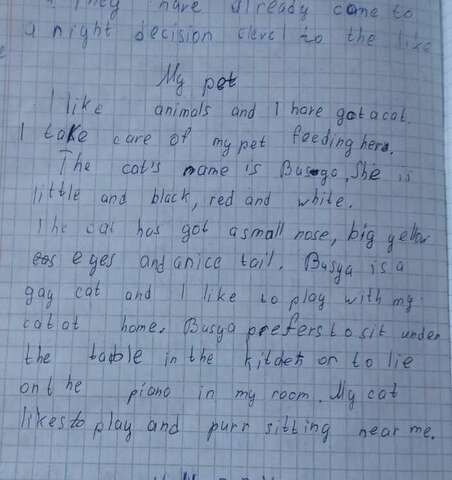 They have already come to
a right decision clevel to the like
My pet
I like animals and I have got a cat.
I take care of my pet feeding her.
The cat's name is Busya, She is
little and black, red and white.
The cat has got a small nose, big yellow
eyes and a nice tail. Busya is a
gay cat and I like to play with my
cat at home. Busya prefers to sit under
the table in the kitden or to lie
on the piano in my room. My cat
likes to play and purr sitting near me.